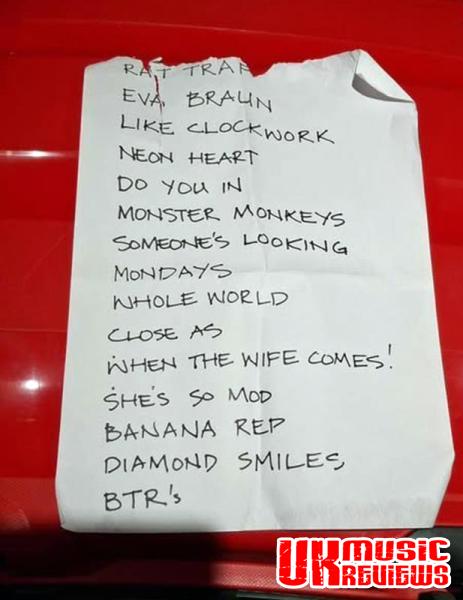 RAT TRAP
EVA BRAUN
LIKE CLOCKWORK
NEON HEART
DO YOU IN
MONSTER MONKEYS
SOMEONE'S LOOKING
MONDAYS
WHOLE WORLD
CLOSE AS
WHEN THE WIFE COMES!
SHE'S SO MOD
BANANA REP
DIAMOND SMILES
BTR's
UK MUSIC
REVIEWS